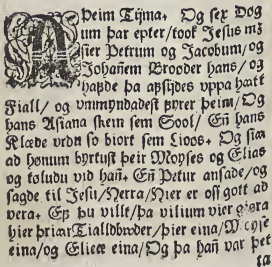 A Þeim Tijma. Og sex Dog
um þar epter/took Jesus m3
sier Petrum og Jacobum/og
Johañem Brooder hans/og
hafde þa afsijdes vppa haatt
Fiall/og vmmyndadest fyrer þeim/Og
hans Asiana skein sem Sool/Eñ hans
Klæde vrdu so biort sem Lioos. Og siaa
ad hønum byrtust þeir Moyses og Elias
og toludu vid hañ. Eñ Petur ansade/og
sagde til Jesu/Herra/Hier er oss gott ad
vera. Ef þu villt/þa vilium vier giøra
hier þriar Tialldbwder/þier eina/Moyse
eina/og Eliæ eina/Og þa hañ var þet
ta